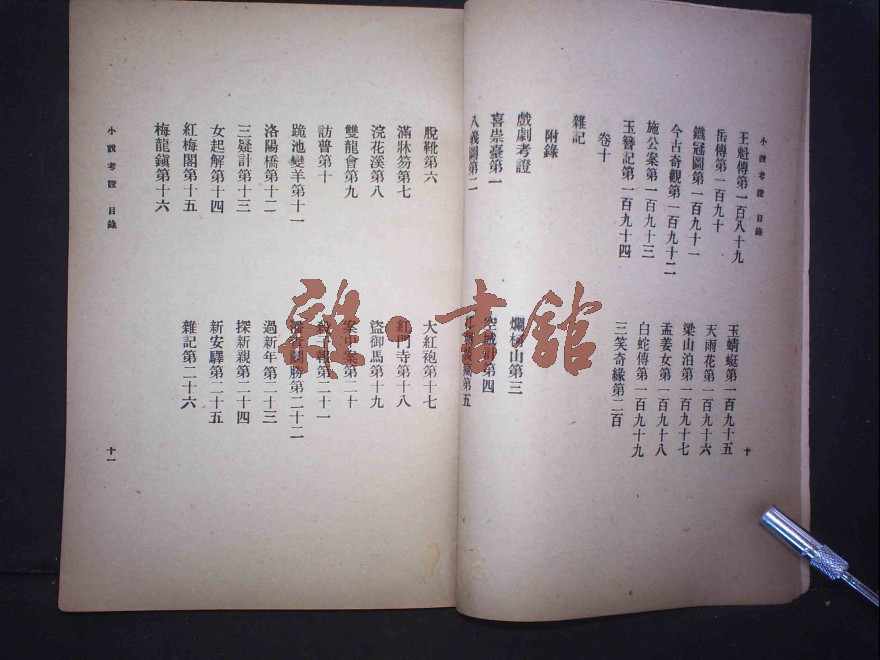 小說考證 目錄
王魁傳第一百八十九
岳傳第一百九十
鐵冠圖第一百九十一
今古奇觀第一百九十二
施公案第一百九十三
玉簪記第一百九十四
玉蜻蜓第一百九十五
天雨花第一百九十六
梁山泊第一百九十七
孟姜女第一百九十八
白蛇傳第一百九十九
三笑奇緣第二百
十
卷十
雜記
附錄
戲劇考證
喜崇臺第一
八義圖第二
爛柯山第三
空城計第四
第五
脫靴第六
滿牀笏第七
浣花溪第八
雙龍會第九
訪普第十
跪池變羊第十一
洛陽橋第十二
三疑計第十三
女起解第十四
紅梅閣第十五
梅龍鎮第十六
大紅袍第十七
紅門寺第十八
盜御馬第十九
案中案第二十
殺子報第二十一
鬭勝第二十二
過新年第二十三
探新親第二十四
新安驛第二十五
雜記第二十六
小說考證 目錄
十一
雜·書館